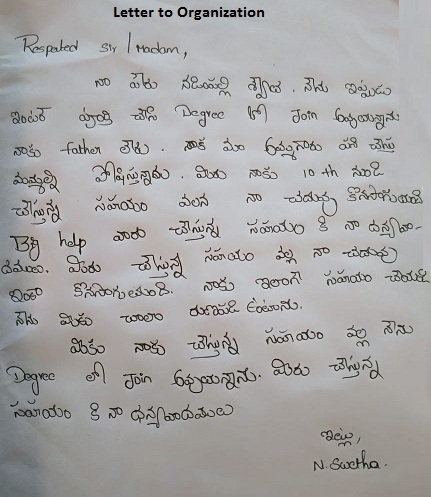 Letter to Organization
Respated Sir / Madam,
నా పేరు నడిపల్లి శ్వేత. నేను ఇప్పుడు
ఇంటర్ పూర్తి చేసి Degree లో Join అవ్వుయన్నాను
నాకు father లేడు. నాకే మా అమ్మగారు పని చేస్తు
మమ్మల్ని పోషిస్తున్నారు. మీరు నాకు 10th నుండి
చేస్తున్న సహాయం వలన నా చదువు కొనసాగుతుంది
help వారు చేస్తున్న సహాయం కి నా ధన్యవా-
దములు. మీరు చేస్తున్న సహాయం వల్ల నా చదువు
ఇంకా కొనసాగుతుంది. నాకు ఇలాంగే సహాయం చేయండి
నేను మీకు చాలా రుణపడి ఉంటాను.
మీరు నాకు చేస్తున్న సహాయం వల్ల నేను
Degree లో Join అవ్వుయన్నాను. మీరు చేస్తున్న
సహాయం కి నా ధన్యవాదములు
ఇట్లు,
N. Swetha.